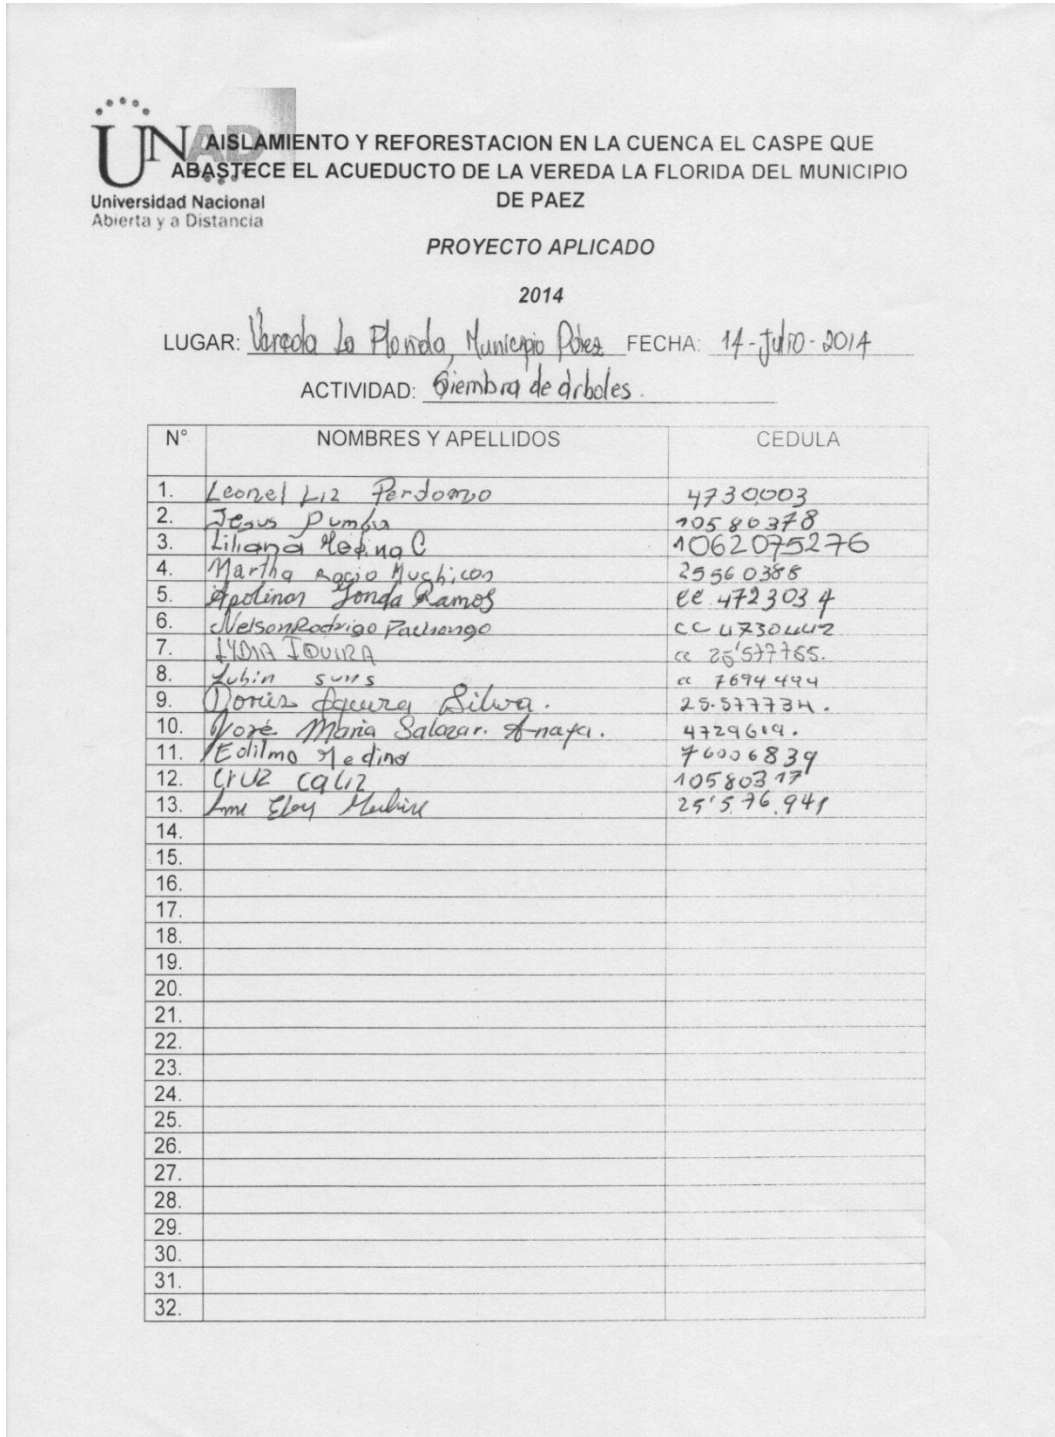 UNAD
Universidad Nacional
Abierta y a Distancia
AISLAMIENTO Y REFORESTACION EN LA CUENCA EL CASPE QUE
ABASTECE EL ACUEDUCTO DE LA VEREDA LA FLORIDA DEL MUNICIPIO
DE PAEZ
PROYECTO APLICADO
2014
LUGAR: Vereda La Florida, Municipio Páez FECHA: 14-Julio-2014
ACTIVIDAD: Siembra de árboles.
N° NOMBRES Y APELLIDOS CEDULA
1. Leonel Liz Perdomo 4730003
2. Jesus Pumba 10580378
3. Liliana Medina C 1062075276
4. Martha Rocio Muchicon 25560388
5. Apolinar Yonda Ramos cc 4723034
6. Nelson Rodrigo Pachongo cc 4730442
7. LYDIA IQUIRA cc 25'577765.
8. Lubin suns cc 7694494
9. Doris Aguira Silva. 25.577734.
10. José Maria Salazar. Anaya. 4729619.
11. Edilmo Medina 76006839
12. Cruz Caliz 10580317
13. Eloy 25'576.941
14.
15.
16.
17.
18.
19.
20.
21.
22.
23.
24.
25.
26.
27.
28.
29.
30.
31.
32.